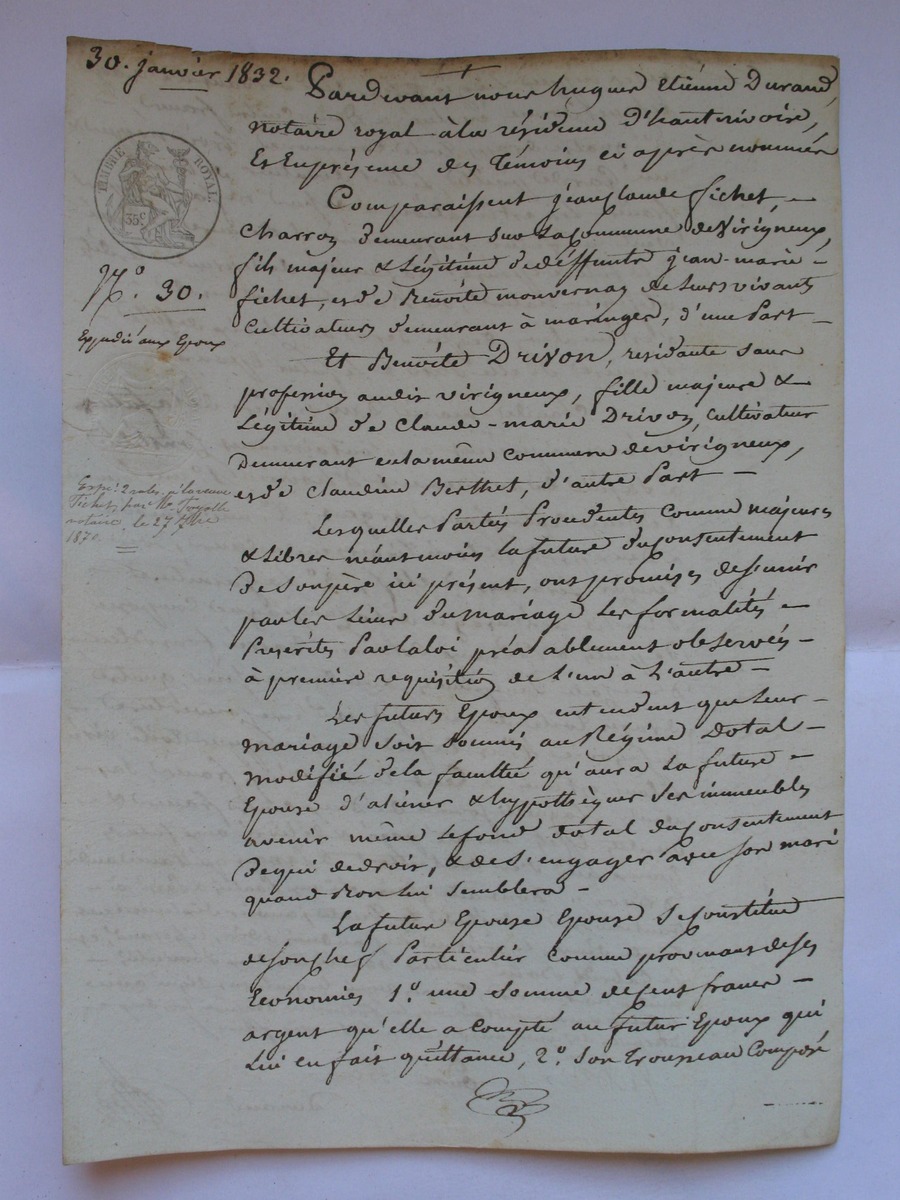 30. janvier 1832.
TIMBRE ROYAL
35c
N.o 30.
Expédié aux Epoux
Expé. 2 roles à la veuve
Fichet, par Me
notaire, le 27 7bre
1870.
Pardevant nous hugues etiénne Durand,
notaire royal à la résidence d'hauterivoire,
Et En présence des Témoins ci après nommés
Comparaissent jean claude fichet,
Charron demeurant sur la Commune de Virigneux,
fils majeur & Légitime de déffunts jean-marie
fichet, et de Benoite monvernay de leurs vivants
Cultivateurs demeurant à maringes, d'une Part
Et Benoîte DRIVON, residante sans
profession audit virigneux, fille majeure &
Légitime de Claude-marie Drivon, Cultivateur
Demeurant en la même Commune de virigneux,
et de Claudine Berthet, d'autre Part
Lesquelles Parties Procédentes comme majeures
& Libres néantmoins la future du consentement
De son père ici présent, ont promises de s'unir
par les Liens du mariage Les formalités
Prescrites Par la loi préalablement observées
à première requisition de l'un à L'autre
Les futurs Epoux entendent que Leur
mariage soit soumis au Régime Dotal
modifié de la faculté qu'aura La future
Epouse d'aliéner & hypothèquer ses immeubles
avenir même Le fond dotal du consentement
De qui de droit, & de s'engager avec son mari
quand Bon lui semblera
La future Epouse Epouse se constitue
de son chef Particulier comme provenant de ses
Economies 1.o une somme de cent francs
argent qu'elle a Compté au futur Epoux qui
Lui en fait quittance, 2.o son Trousseau Composé